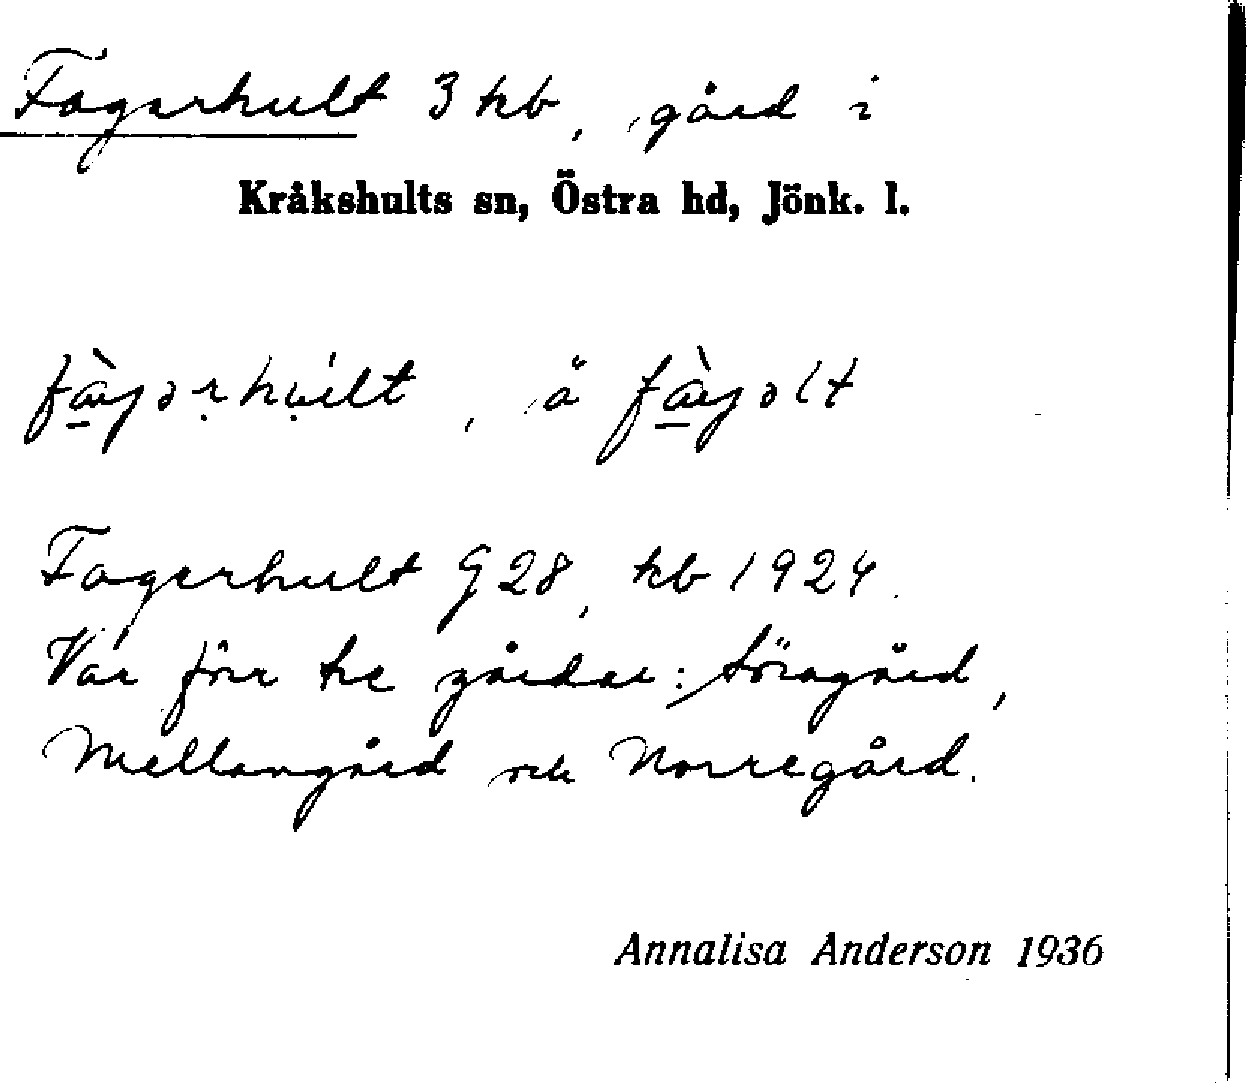 Fagerhult 3 kb, gård i
Kråkshults sn, Östra hd, Jönk. l.
, å
Fagerhult G 28, kb 1924.
Var förr tre gårdar: Söragård,
Mellangård och Norregård.
Annalisa Anderson 1936